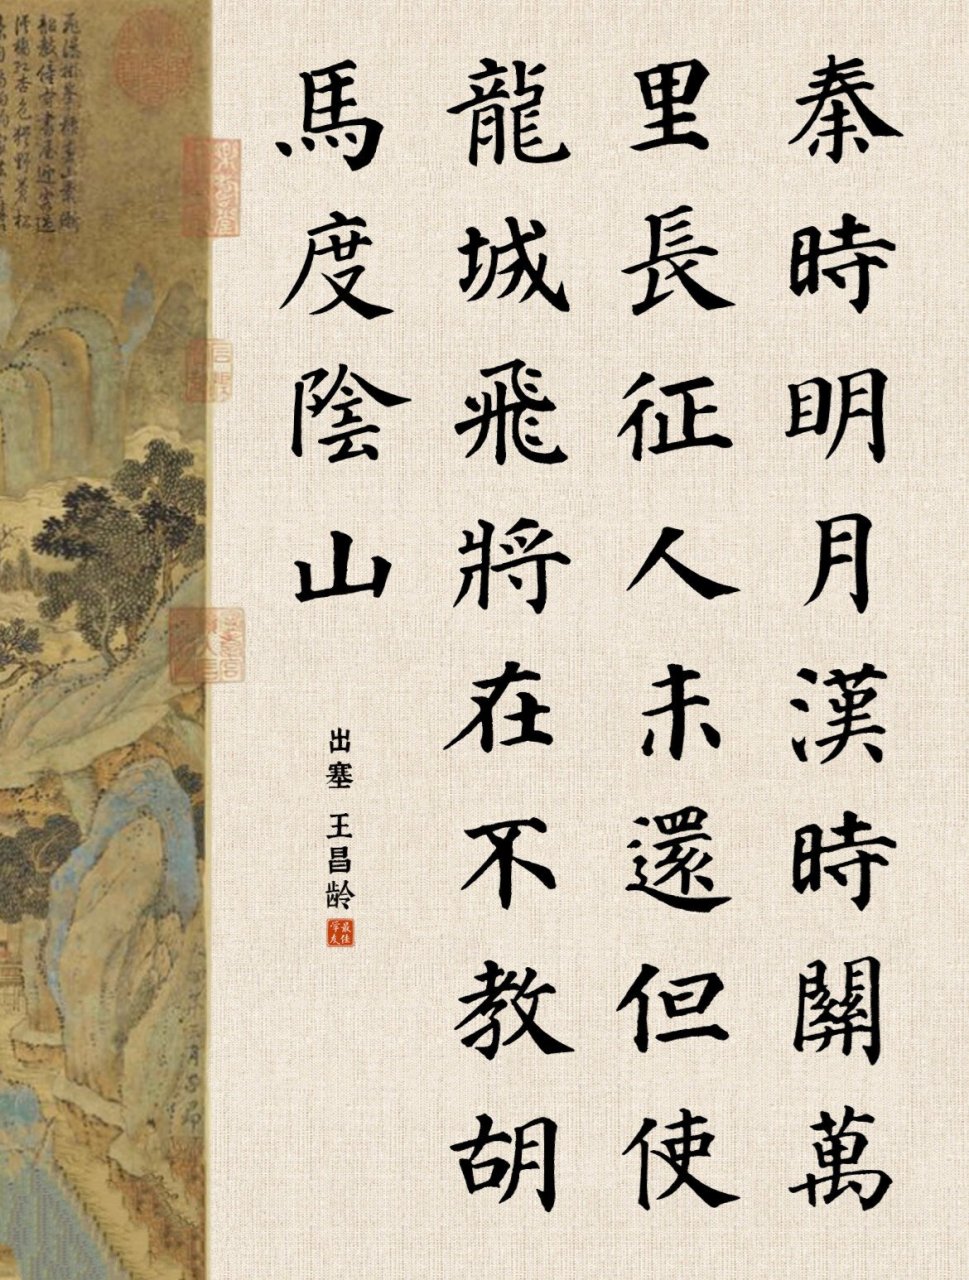 秦時明月漢時關萬
里長征人未還但使
龍城飛將在不教胡
馬度陰山
出塞 王昌龄
最佳
学友